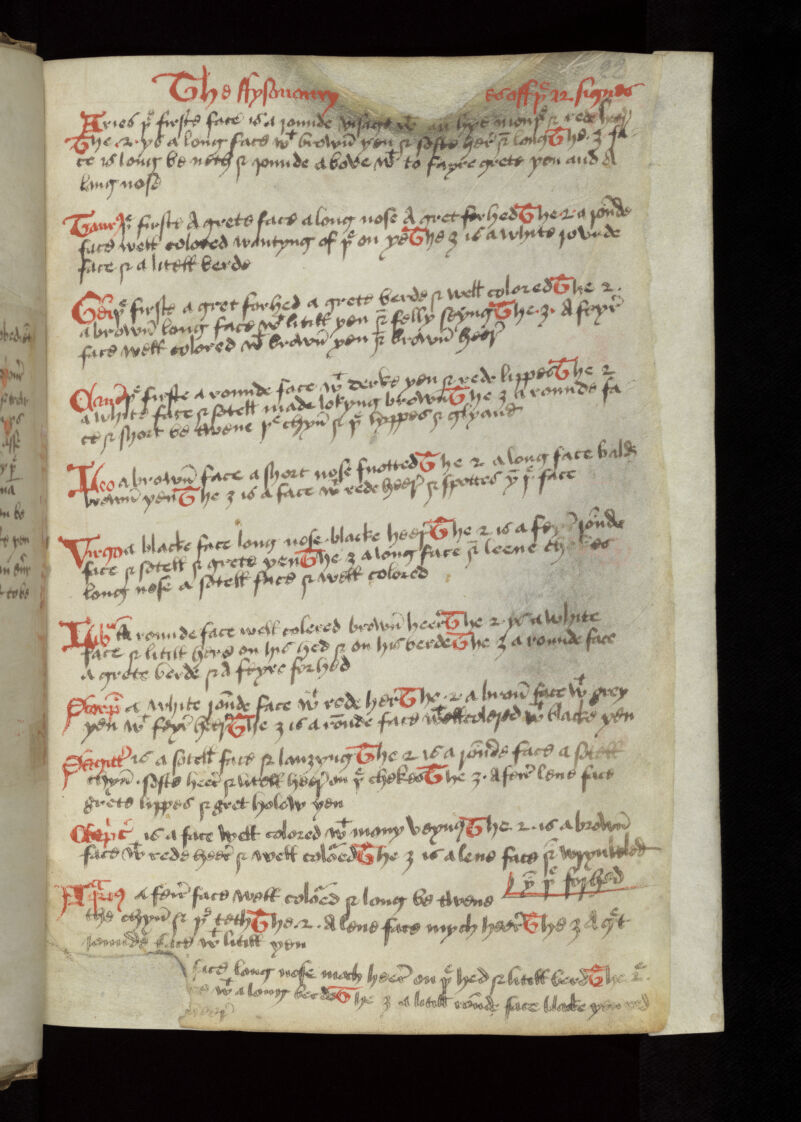 The ffysenamy es off þe 12 signes
Aries þe firste face is a rounde visage wt an hye mouþ & rede heer
The .2. ys a long face wt brown yen & softe heer & long The .3. fa-
ce is long be neth & rounde a bove wt to fayre grete yen and A
lang nose
Taur9 þe firste A grete face a long nose A gret forhed The 2 a rounde
face well colored wantyng of þe on ye The 3 is a white rounde
face & a litell berde
Gēi þe firste a gret forhed a grete berde & well colored The 2.
a brown long face wt litill yen & felly seyng The .3. A feyer
face well colored wt brown yen & brown heer
þe firste a rounde face wt derke yen & rede lippes The 2
a white face & sotell made lokyng brown The 3 a rounde fa-
ce & short be twene þe chyn & þe lyppes &
Leo a brown face a short nose knotted The 2 a long face balde
brown yen The 3 is a face wt rede heer & spottes yn þe face
Virgo a blacke face long nose blacke heer The 2 is a feyer rounde
face & sotell & grete yen The 3 a long face & leene chekes
long nose a sotell face & well colored
Libra A rounde face well colered brown heer The 2 ys a white
face & litill here on his hed & on his berde The 3 a rounde face
a grete berde & A feyre forhed
Scorp a white rounde face wt rede her The .2. a broun face wt grey
yen wt feyer heer The 3 is a rounde face well colered wt blacke yen
Sagitt is a sotell face & The 2 is a rounde face a sotell
chyn softe heer & litell heer on þe chekes The 3. A feier lene face
grete lippes & gret holow yen
is a face well colored wt mony veynq The .2. is a brown
face wt rede heer & well colored The 3 is a lene face & wrynkled
yn þe forhed
a feier face well colored & long be twene
the chyn & þe teth The .2. A lene face mych heer The 3 A gret
rounde face wt litill yen
face long nose moch heer on þe hed & litill berd The 2.
wt a long berde The 3 a litell rounde face blacke yen red